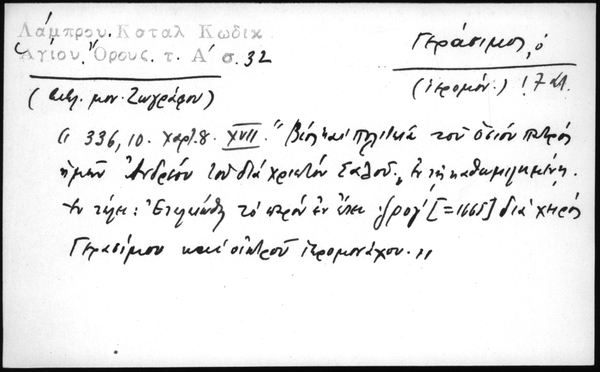 Λάμπρου. Καταλ Κωδικ
Ἁγίου Ὄρους. τ. Α´ σ. 32
Γεράσιμος, ὁ
(ἱερομόν.) 17 αι.
(Βιβλ. μον. Ζωγράφου)
336, 10. χαρτ. 8. XVII. "Βίος καὶ πολιτεία τοῦ ὁσίου πατρός
ἡμῶν Ἀνδρέου τοῦ διά χριστόν Σαλοῦ, ἐν τῇ καθωμιλημένῃ.
ἐν τέλει: Ἐτελειώθη τό παρόν ἐν ἔτει ͵ζρογ´ [=1665] διά χειρός
Γερασίμου καί οἰκτροῦ ἱερομονάχου."